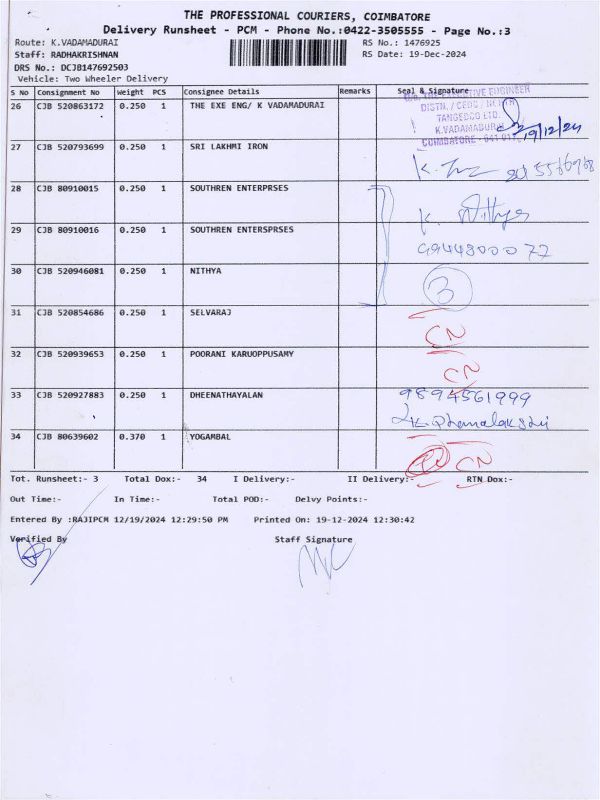 THE PROFESSIONAL COURIERS, COIMBATORE
Delivery Runsheet - PCM - Phone No.:0422-3505555 - Page No.:3
Route: K.VADAMADURAI RS No.: 1476925
Staff: RADHAKRISHNAN RS Date: 19-Dec-2024
DRS No.: DCJB147692503
Vehicle: Two Wheeler Delivery
S No Consignment No Weight PCS Consignee Details Remarks Seal & Signature
26 CJB 520863172 0.250 1 THE EXE ENG/ K VADAMADURAI
EXECUTIVE ENGINEER
DISTN./ CEDC / NORTH
TANGEDCO LTD.
K.VADAMADURAI
COIMBATORE - 641 017
19/12/24
27 CJB 520793699 0.250 1 SRI LAKHMI IRON
28 CJB 80910015 0.250 1 SOUTHREN ENTERPRSES K. Nithya
29 CJB 80910016 0.250 1 SOUTHREN ENTERSPRSES
30 CJB 520946081 0.250 1 NITHYA 3
31 CJB 520854686 0.250 1 SELVARAJ CN
32 CJB 520939653 0.250 1 POORANI KARUOPPUSAMY CN
33 CJB 520927883 0.250 1 DHEENATHAYALAN 9894561999
34 CJB 80639602 0.370 1 YOGAMBAL CN
Tot. Runsheet:- 3 Total Dox:- 34 I Delivery:- II Delivery:- RTN Dox:-
Out Time:- In Time:- Total POD:- Delvy Points:-
Entered By :RAJIPCM 12/19/2024 12:29:50 PM Printed On: 19-12-2024 12:30:42
Verified By Staff Signature